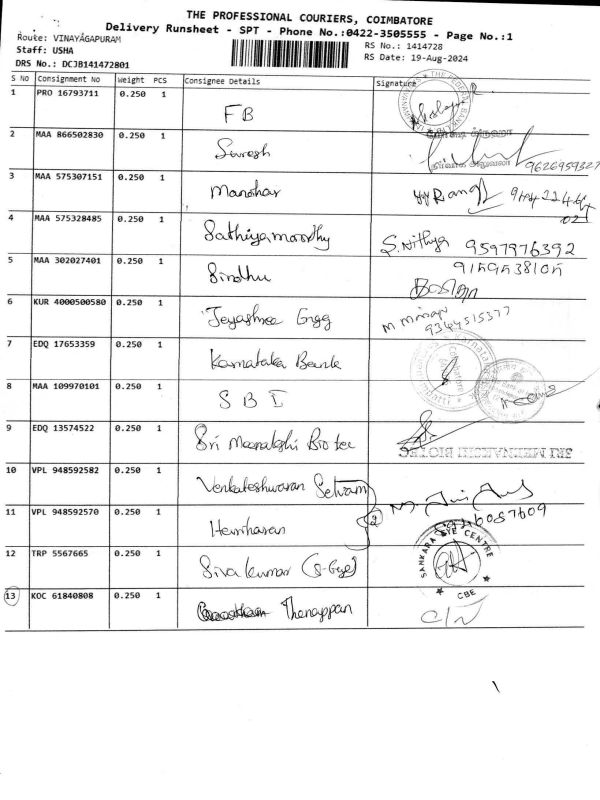 THE PROFESSIONAL COURIERS, COIMBATORE
Delivery Runsheet - SPT - Phone No.:0422-3505555 - Page No.:1
Route: VINAYAGAPURAM
Staff: USHA
DRS No.: DCJB141472801
RS No.: 1414728
RS Date: 19-Aug-2024
S No Consignment No Weight PCS Consignee Details Signature
1 PRO 16793711 0.250 1 FB
2 MAA 866502830 0.250 1 Suresh 9626959327
3 MAA 575307151 0.250 1 Manohar
4 MAA 575328485 0.250 1 Sathiyamoorthy S. Nithya 9597976392
5 MAA 302027401 0.250 1 Sindhu
6 KUR 4000500580 0.250 1 Jeyashree Engg 9344515377
7 EDQ 17653359 0.250 1 Karnataka Bank
8 MAA 109970101 0.250 1 SBI
9 EDQ 13574522 0.250 1 Sri Meenakshi Biotec SRI MEENAKSHI BIOTEC
10 VPL 948592582 0.250 1 Venkateshwaran Selvam
11 VPL 948592570 0.250 1 Hariharan 2
12 TRP 5567665 0.250 1 Siva kumar (S-Eye) SANKARA EYE CENTRE CBE
13 KOC 61840808 0.250 1 Thenappan